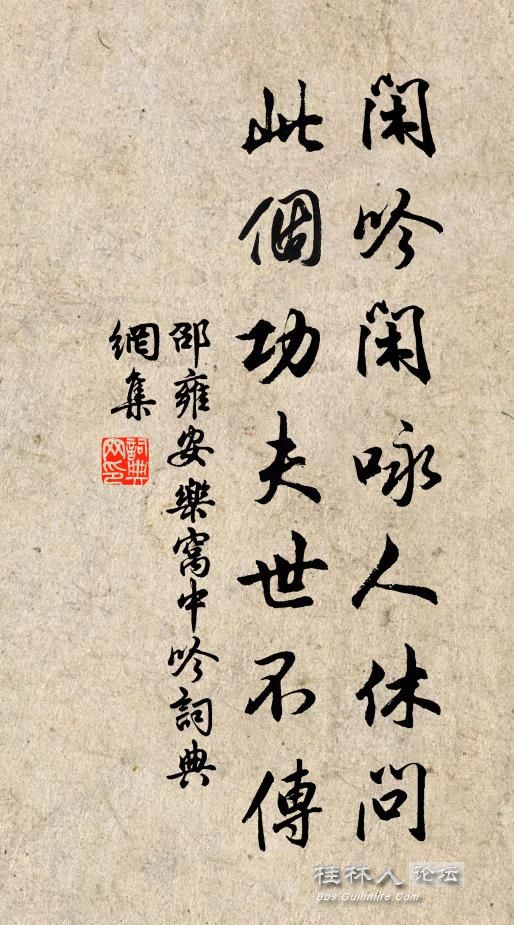 閑吟閑咏人休問
此個功夫世不傳
邵雍安樂窩中吟詞典
網集
詞典網印
桂林人论坛
Bbs.Guilinlife.Com